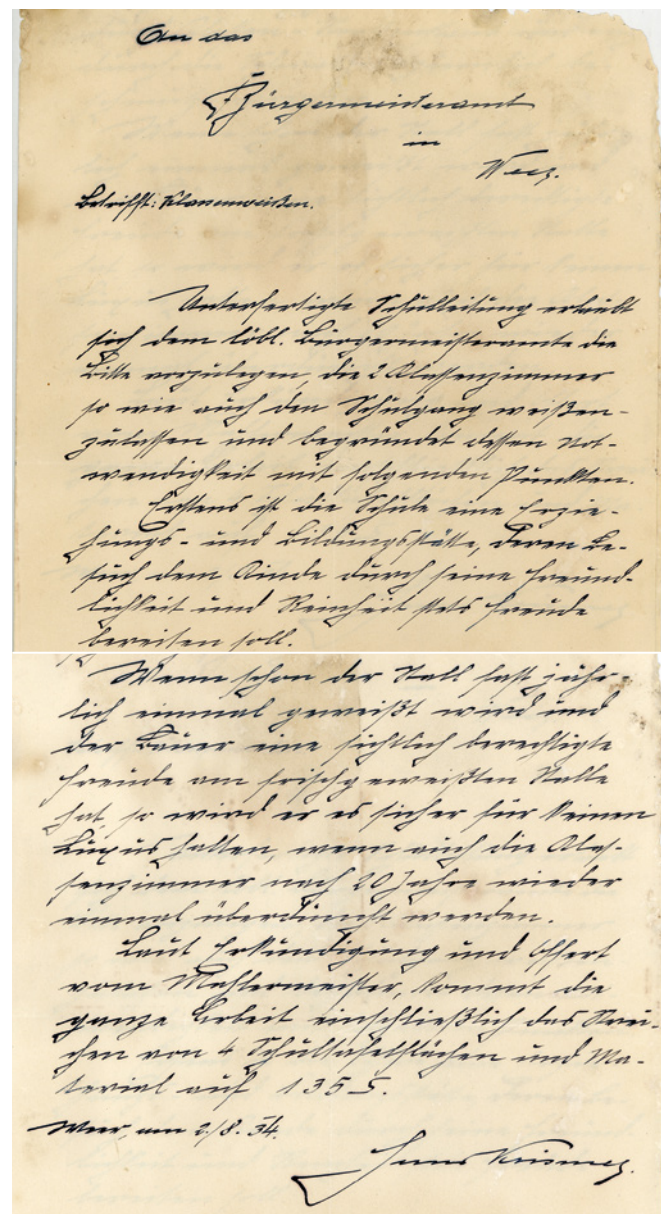 An das
Bürgermeisteramt
in
Weer.
Betrifft: Klassenweißen.
Unterfertigte Schulleitung erlaubt
sich dem löbl. Bürgermeisteramte die
Bitte vorzulegen, die 2 Klassenzimmer
so wie auch den Schulgang weißen-
zulassen und begründet dessen Not-
wendigkeit mit folgenden Punkten.
Erstens ist die Schule eine Erzie-
hungs- und Bildungsstätte, deren Be-
such dem Kinde durch seine Freund-
lichkeit und Reinheit stets Freude
bereiten soll.
Wenn schon der Stall fast jähr-
lich einmal geweißt wird und
der Bauer eine sichtlich berechtigte
Freude am frischgeweißten Stalle
hat, so wird er es sicher für keinen
Luxus halten, wenn auch die Klas-
senzimmer nach 20 Jahre wieder
einmal übertüncht werden.
Laut Erkundigung und Offert
vom Mahlermeister, kommt die
ganze Arbeit einschließlich das Strei-
chen von 4 Schultafelflächen und Ma-
terial auf 135 S.
Weer, am 2./8. 34.
Hans